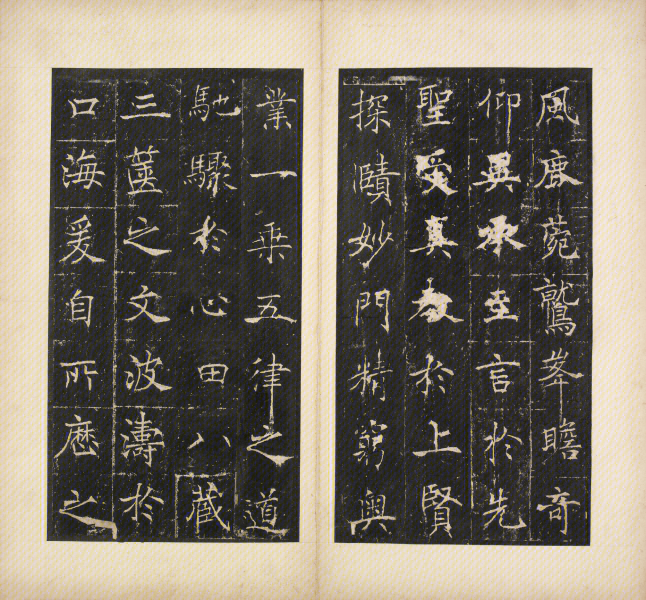 風鹿菀鷲峯瞻奇
仰異承至言於先
聖受真教於上賢
探賾妙門精窮奥
業一乘五律之道
馳驟於心田八藏
三篋之文波濤於
口海爰自所歷之